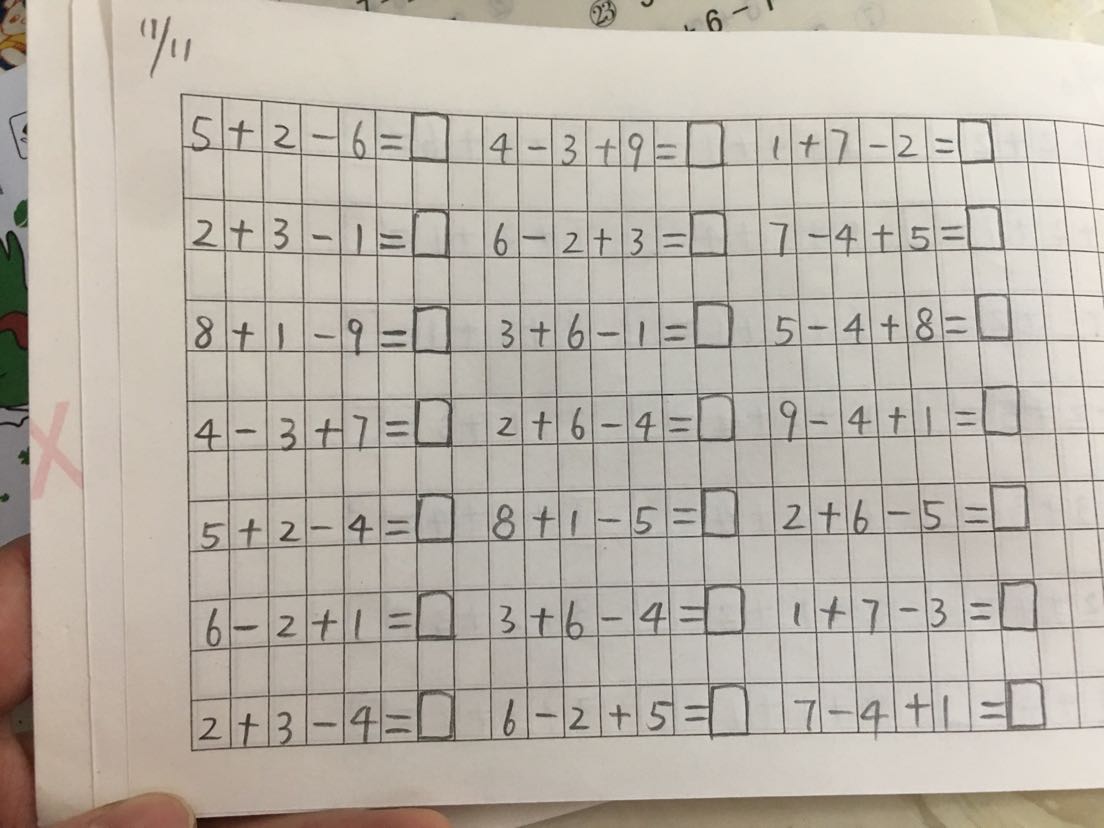 ㉓
+6-1
11/11
5+2-6=□ 4-3+9=□ 1+7-2=□
2+3-1=□ 6-2+3=□ 7-4+5=□
8+1-9=□ 3+6-1=□ 5-4+8=□
4-3+7=□ 2+6-4=□ 9-4+1=□
5+2-4=□ 8+1-5=□ 2+6-5=□
6-2+1=□ 3+6-4=□ 1+7-3=□
2+3-4=□ 6-2+5=□ 7-4+1=□